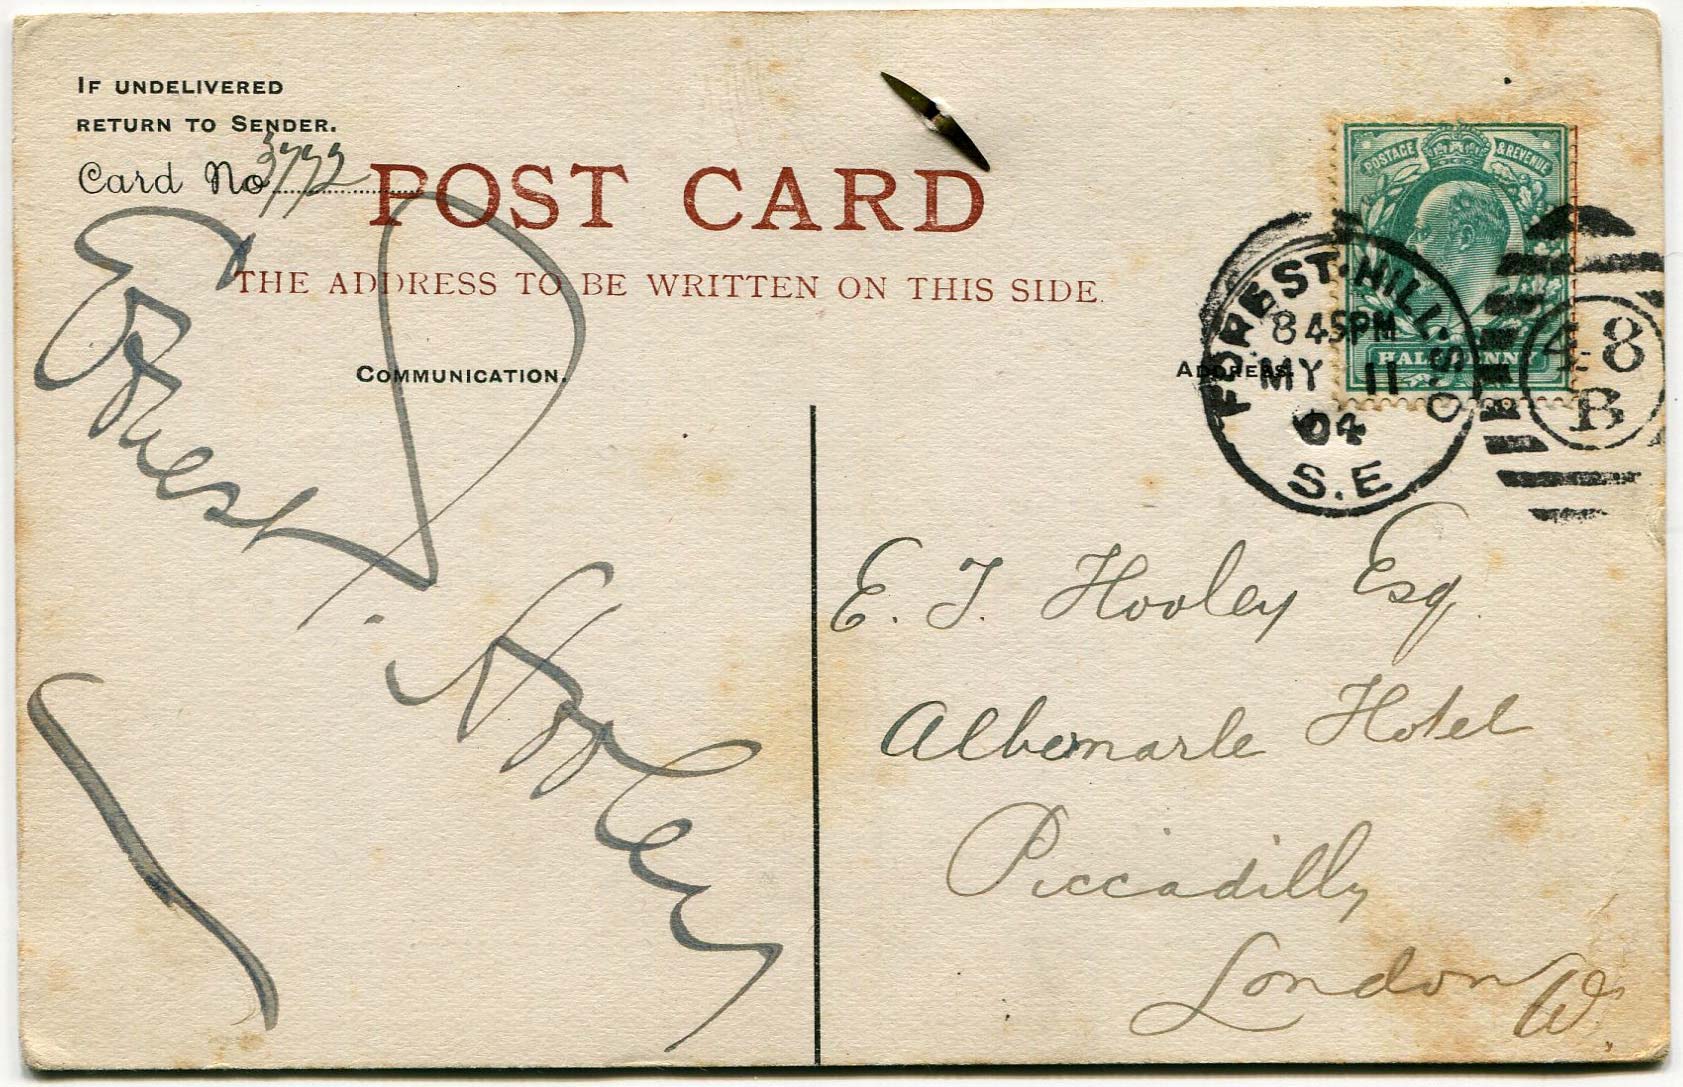 IF UNDELIVERED
RETURN TO SENDER.
Card No 3772
POST CARD
THE ADDRESS TO BE WRITTEN ON THIS SIDE.
COMMUNICATION.
ADDRESS.
POSTAGE & REVENUE
HALFPENNY
FOREST-HILL.S.O
8 45PM
MY 11
04
S.E
48
B
Ernest T. Hooley
E. T. Hooley Esq.
Albemarle Hotel
Piccadilly
London W.